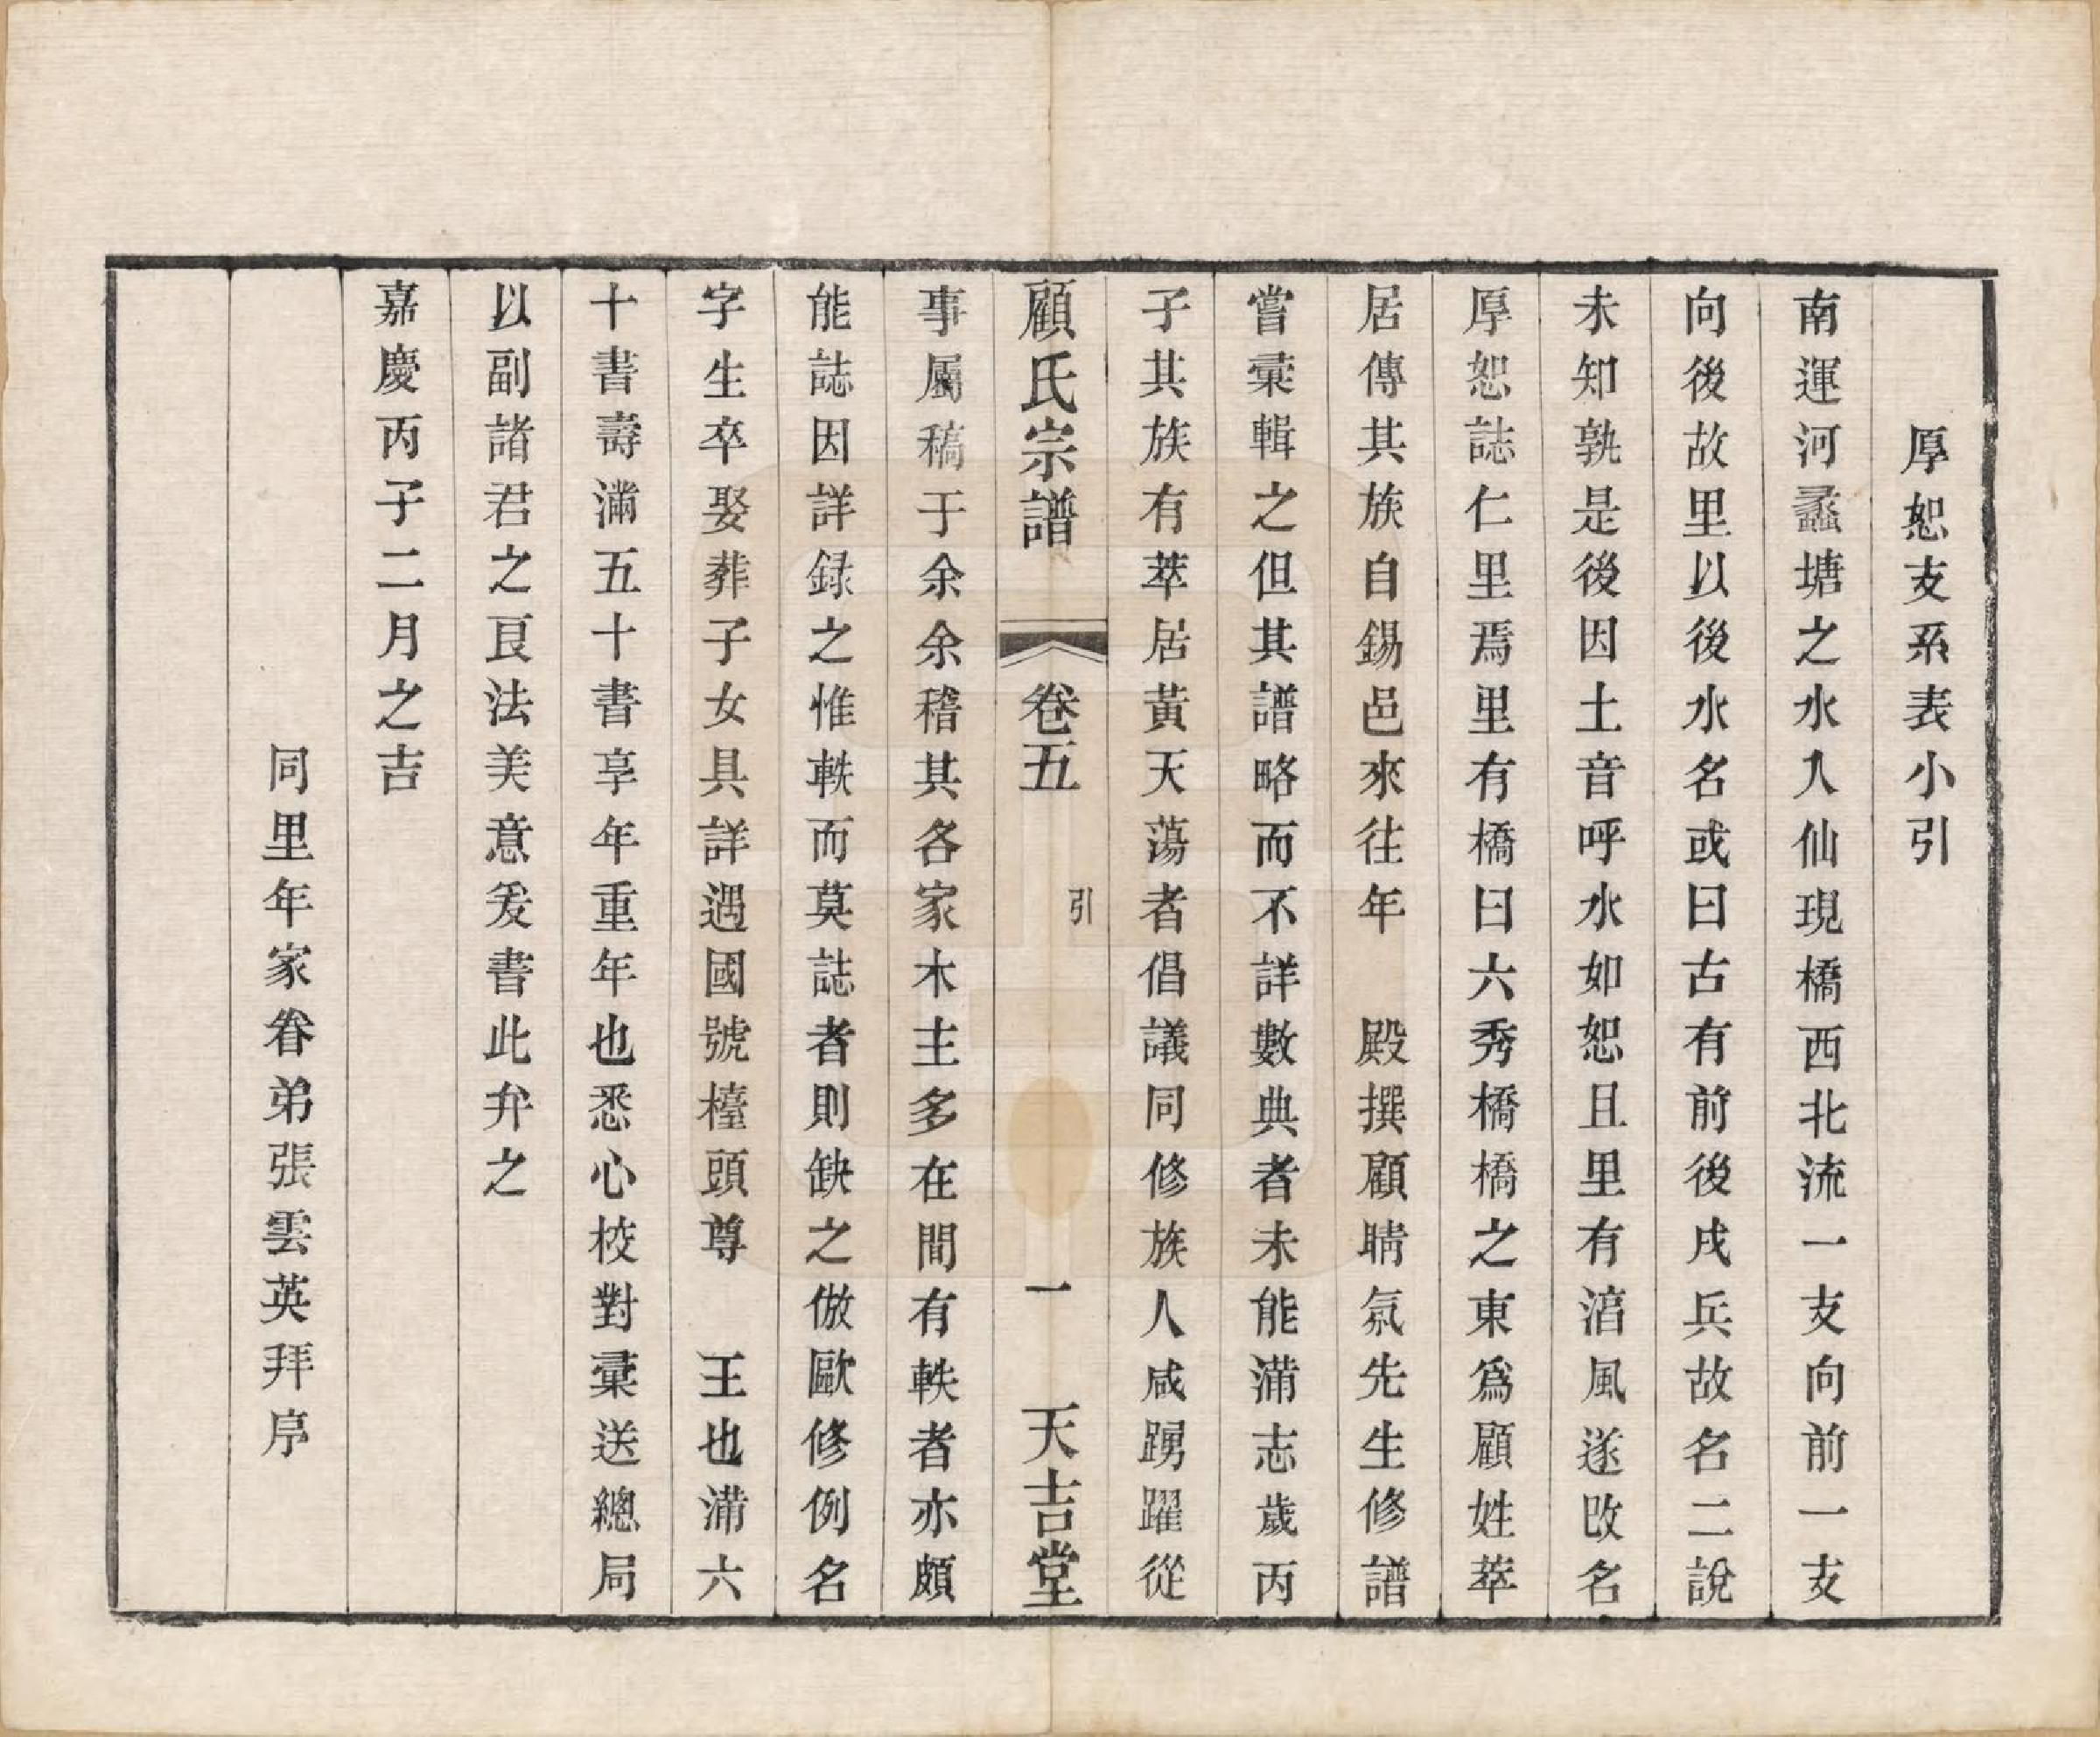 厚恕支系表小引
南運河蠡塘之水入仙現橋西北流一支向前一支
向後故里以後水名或曰古有前後戌兵故名二說
未知孰是後因土音呼水如恕且里有湻風遂改名
厚恕誌仁里焉里有橋曰六秀橋橋之東為顧姓萃
居傳其族自錫邑來往年　殿撰顧晴氛先生修譜
嘗彙輯之但其譜略而不詳數典者未能滿志歲丙
子其族有萃居黃天蕩者倡議同修族人咸踴躍從
顧氏宗譜　卷五　引　一　天吉堂
事屬稿于余余稽其各家木主多在間有軼者亦頗
能誌因詳録之惟軼而莫誌者則缺之倣歐修例名
字生卒娶葬子女具詳遇國號檯頭尊　王也滿六
十書壽滿五十書享年重年也悉心校對彙送總局
以副諸君之艮法美意爰書此弁之
嘉慶丙子二月之吉
同里年家眷弟張雲英拜序